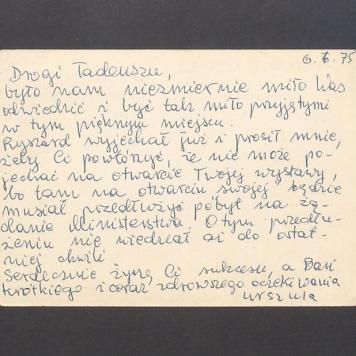 6.6.75
Drogi Tadeuszu,
było nam niezmiernie miło Was
odwiedzić i być tak miło przyjętymi
w tym pięknym miejscu.
Ryszard wyjechał już i prosił mnie,
żeby Ci powtórzyć, że nie może po-
jechać na otwarcie Twojej wystawy,
bo tam na otwarciu swojej będzie
musiał przedłużyć pobyt na żą-
danie Ministerstwa. O tym przedłu-
żeniu nie wiedział aż do ostat-
niej chwili
Serdecznie życzę Ci sukcesu, a Basi
krótkiego i coraz zdrowszego oczekiwania
Urszula